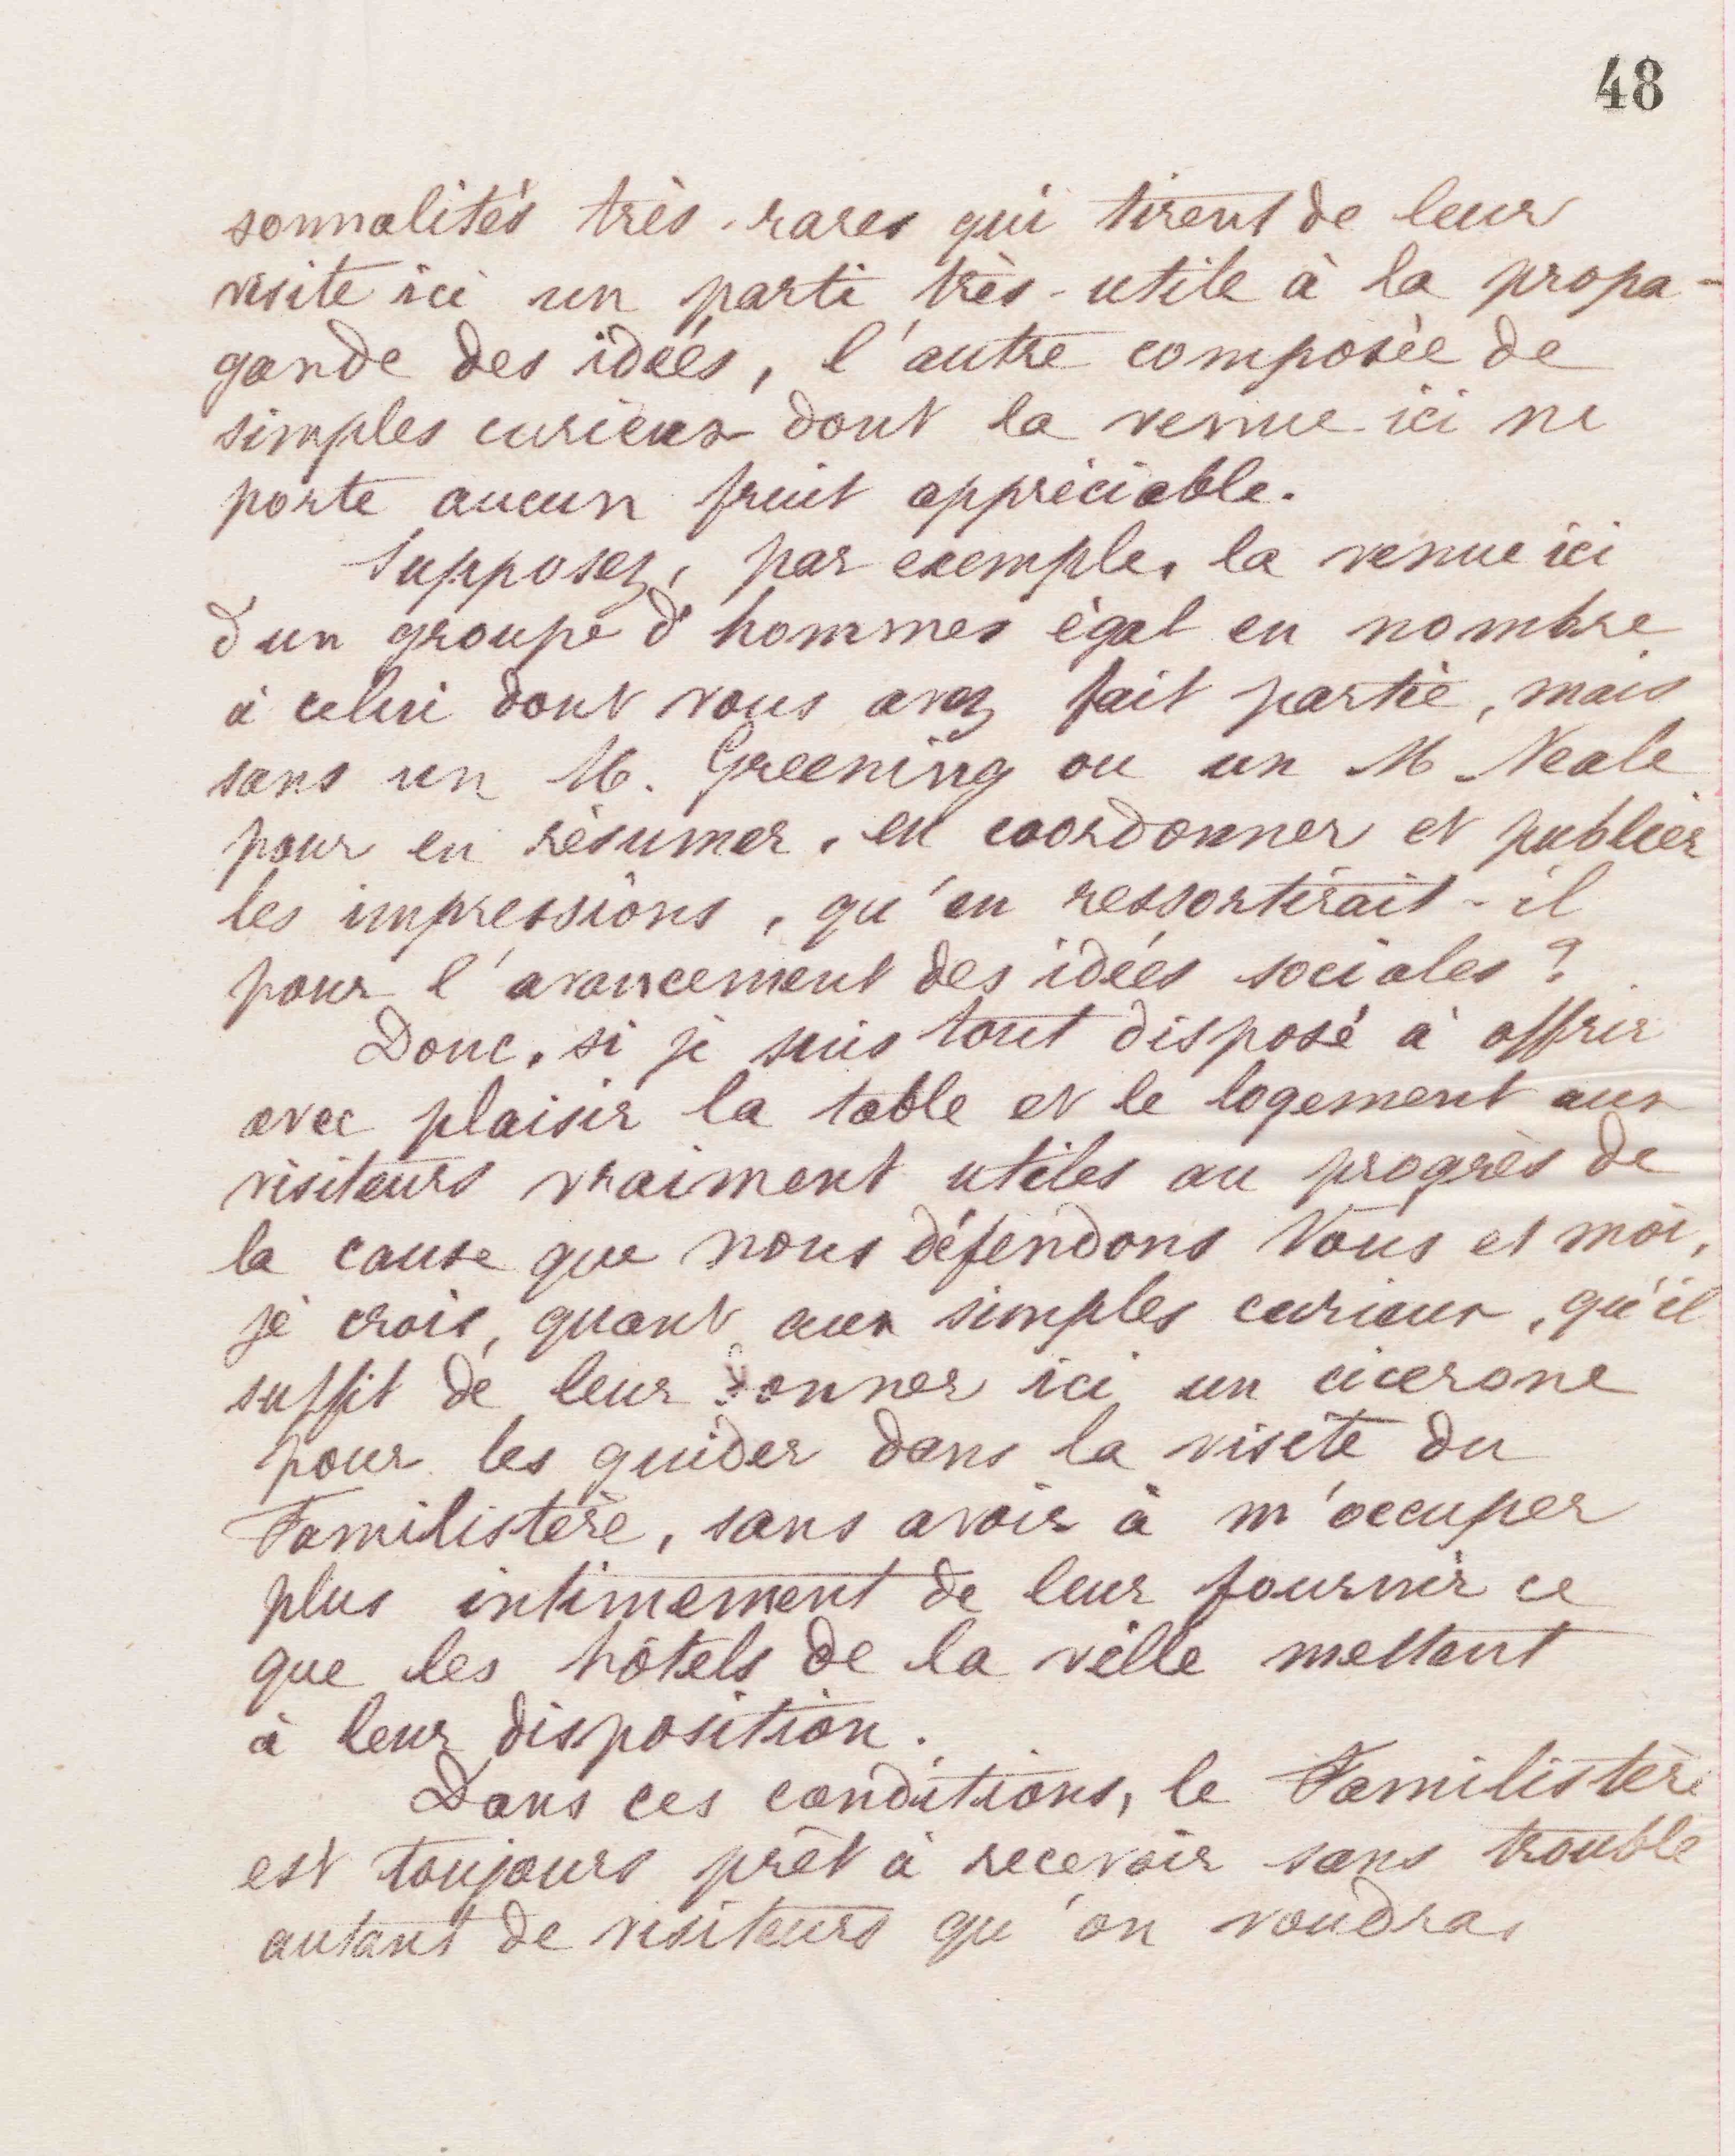 48
sonnalités très-rares qui tirent de leur
visite ici un parti très-utile à la propa-
gande des idées, l'autre composée de
simples curieux dont la venue ici ne
porte aucun fruit appréciable.
Supposez, par exemple, la venue ici
d'un groupe d'hommes égal en nombre
à celui dont vous avez fait partie, mais
sans un M. Greening ou un M Neale
pour en résumer, en coordonner et publier
les impressions, qu'en ressortirait-il
pour l'avancement des idées sociales ?
Donc, si je suis tout disposé à offrir
avec plaisir la table et le logement aux
visiteurs vraiment utiles au progrès de
la cause que nous défendons Vous et moi,
je crois, quant aux simples curieux, qu'il
suffit de leur donner ici un cicerone
pour les guider dans la visite du
Familistère, sans avoir à m'occuper
plus intimement de leur fournir ce
que les hôtels de la ville mettent
à leur disposition.
Dans ces conditions, le Familistère
est toujours prêt à recevoir sans trouble
autant de visiteurs qu'on voudra,